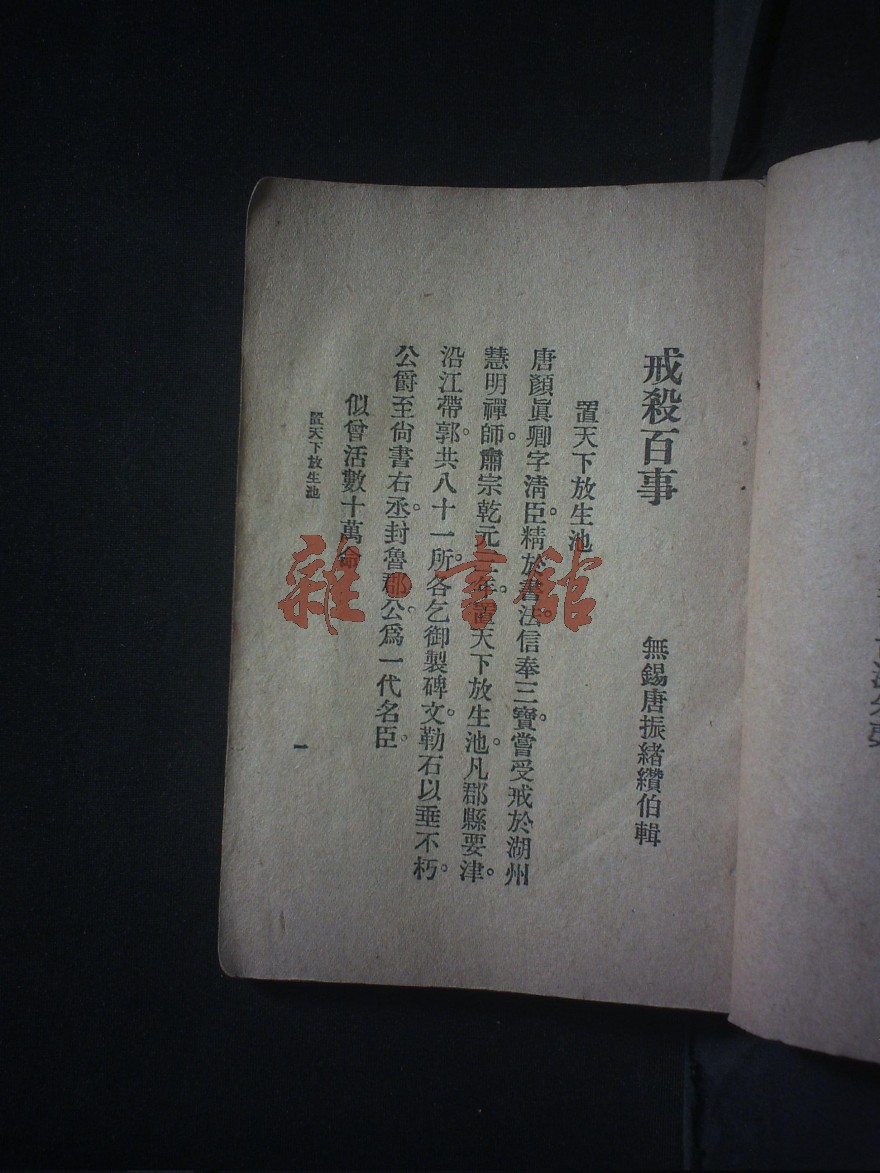 戒殺百事
無錫唐振緒纘伯輯
置天下放生池
唐顏眞卿字淸臣。精於書法。信奉三寶。嘗受戒於湖州
慧明禪師。肅宗乾元三年。置天下放生池。凡郡縣要津。
沿江帶郭。共八十一所。各乞御製碑文。勒石以垂不朽。
公爵至尙書右丞。封魯郡公。爲一代名臣。
似曾活數十萬命
置天下放生池
一
雜·書館